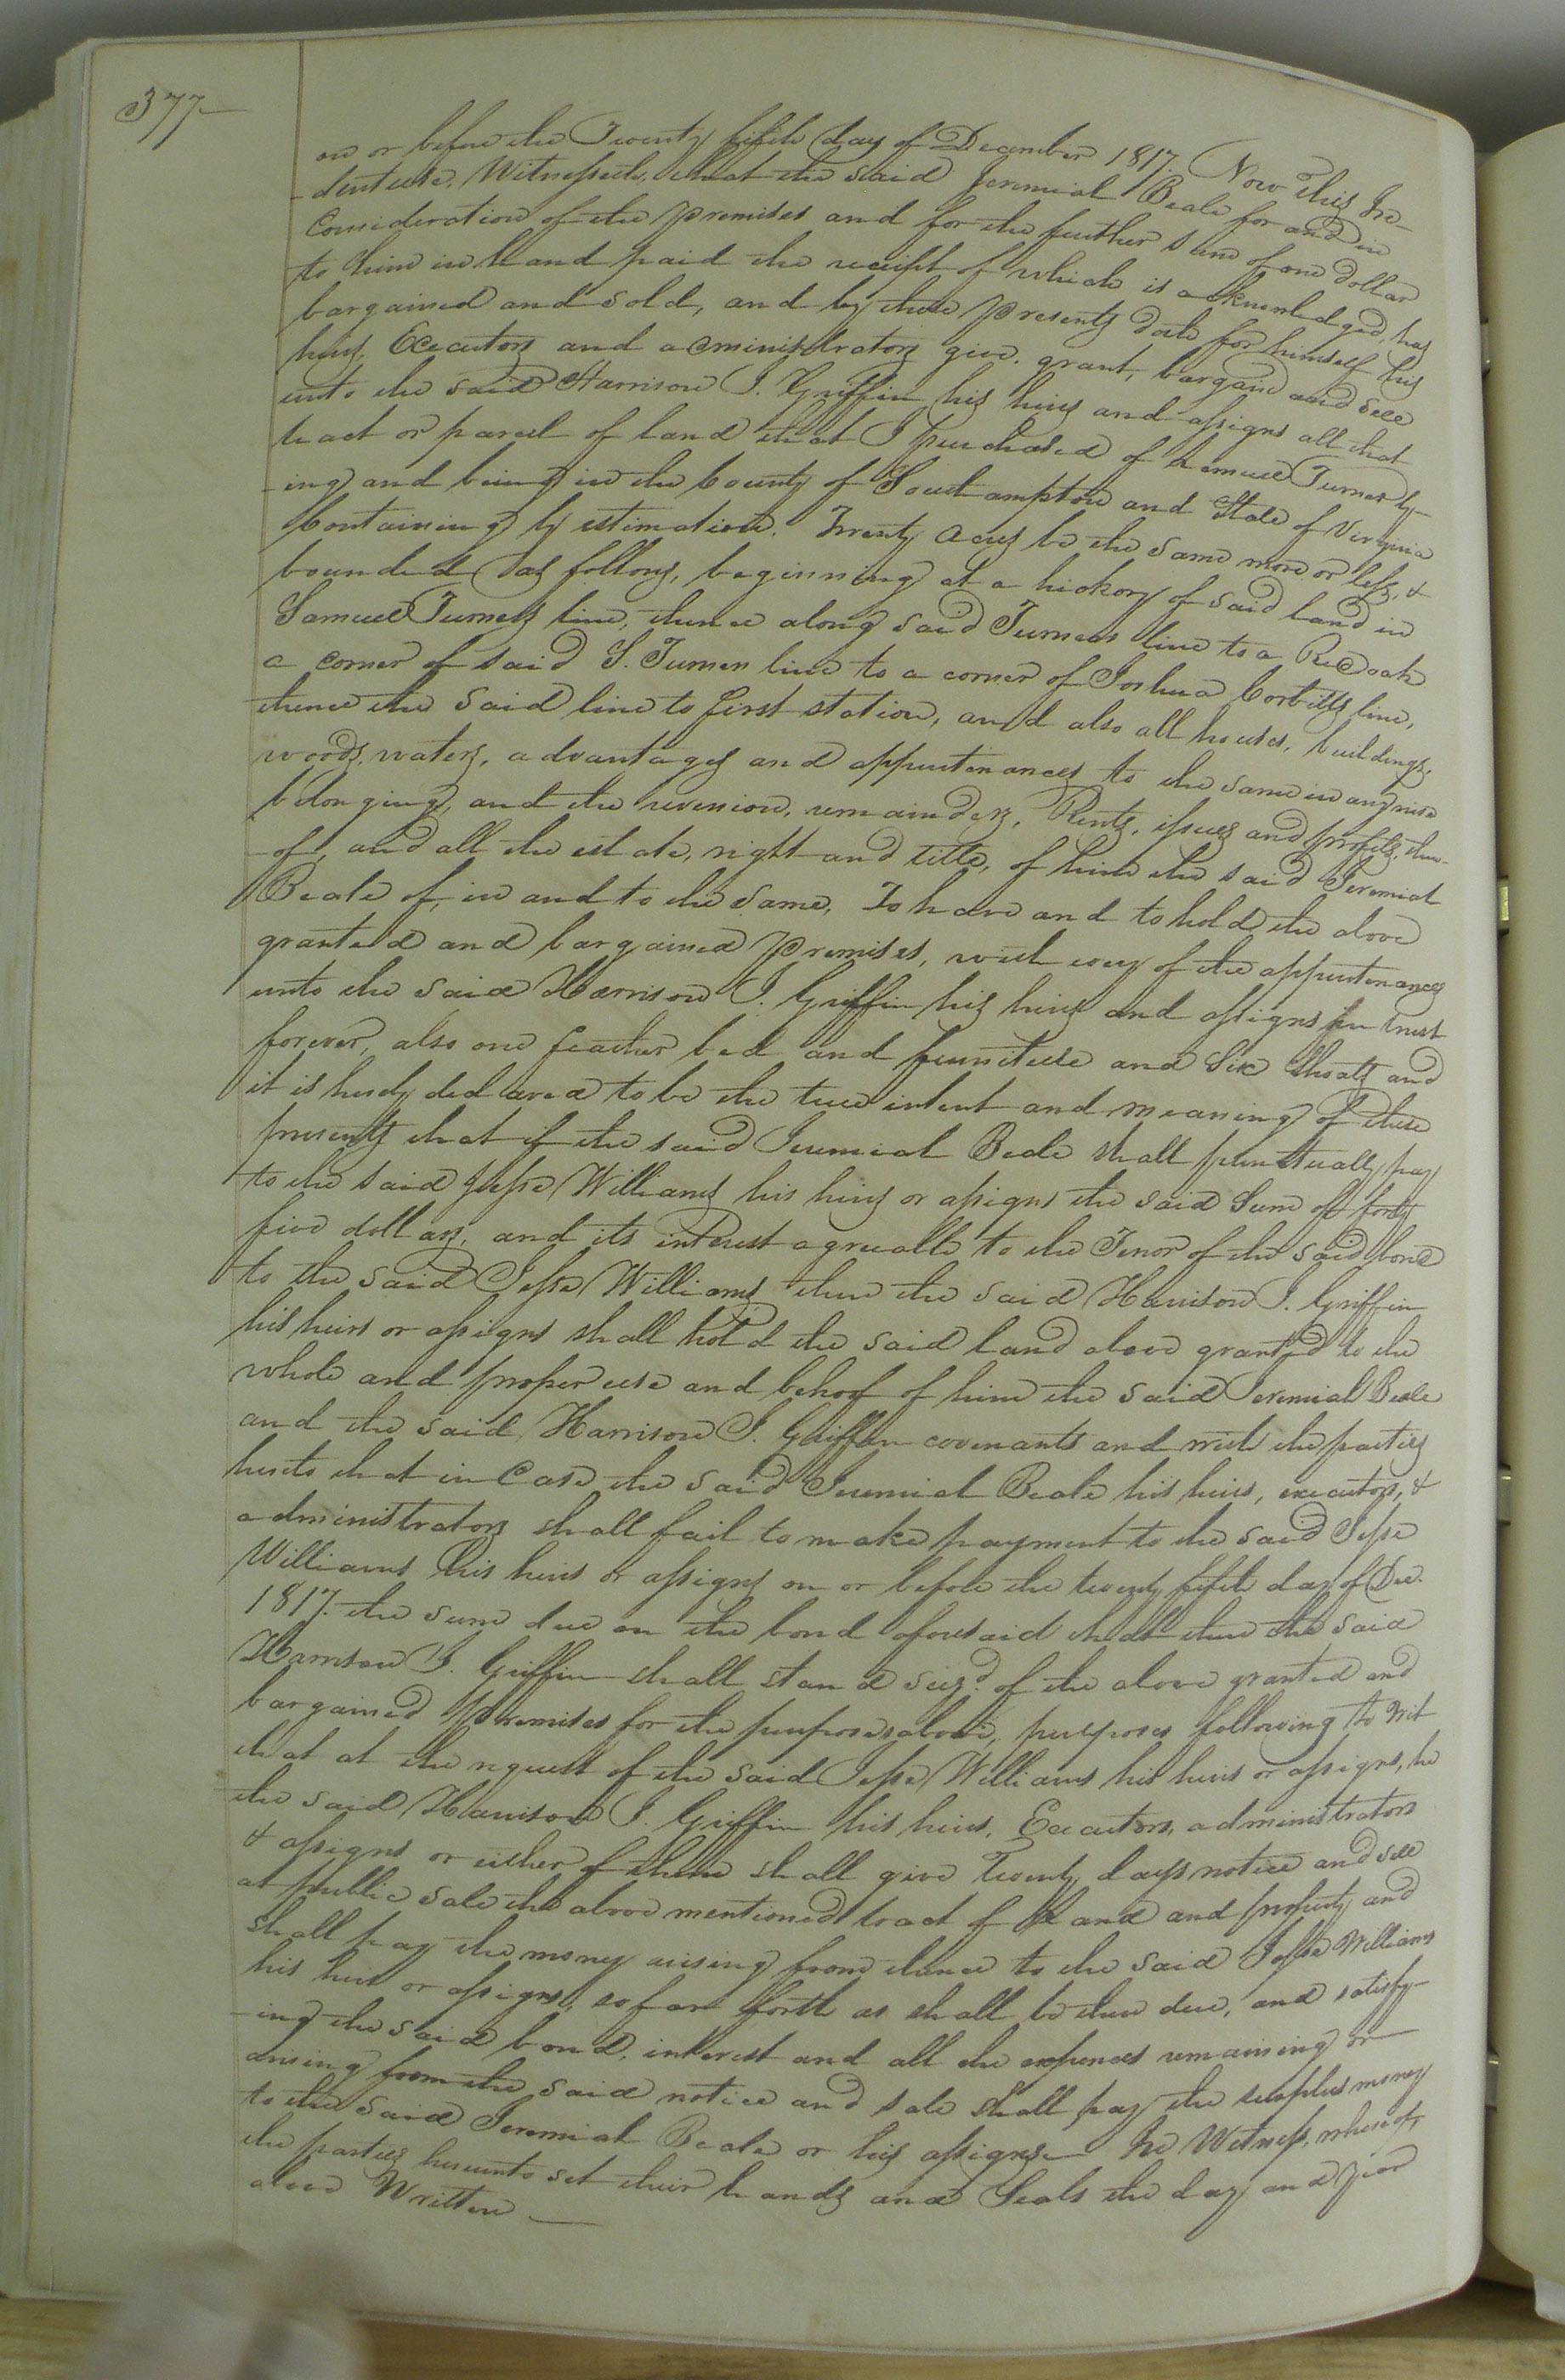 377
on or before the Twenty fifth day of December 1817. Now this In-
-denture, Witnesseth, that the said Jeremiah Beale for and in
Consideration of the premises and for the further sum of one dollar
to him in hand paid the receipt of which is acknowledged, has
bargained and sold, and by these presents doth for himself his
heirs, Executors and administrators give, grant, bargain and sell
unto the said Harrison J. Griffin his heirs and assigns all that
tract or parcel of land that I purchased of Lemuel Turner ly-
-ing and being in the County of Southampton and State of Virginia
Containing by estimation, Twenty Acres be the same more or less, &
bounded as follows, beginning at a hickory of said land in
Samuel Turners line, thence along said Turners line to a Red oak
a corner of said S. Turner line to a corner of Joshua Corbitts line,
thence the said line to first station, and also all houses, buildings,
woods, waters, advantages and appurtenances to the same in any wise
belonging, and the reversion, remainders, Rents, issues and profits, there-
-of, and all the estate, right and title, of him the said Jeremiah
Beale of, in and to the same, To have and to hold the above
granted and bargained premises, with every of the appurtenances
unto the said Harrison J. Griffin his heirs and assigns in trust
forever, also one feather bed and furniture and Six Shoats and
it is hereby declared to be the true intent and meaning of these
presents that if the said Jeremiah Beale shall punctually pay
to the said Jesse Williams his heirs or assigns the said Sum of forty
five dollars, and its interest agreeable to the Tenor of the said bond
to the said Jesse Williams then the said Harrison J. Griffin
his heirs or assigns shall hold the said land above granted to the
whole and proper use and behoof of him the said Jeremiah Beale
and the said Harrison J. Griffin covenants and with the parties
hereto that in Case the said Jeremiah Beale his heirs, executors, &
administrators shall fail to make payment to the said Jesse
Williams his heirs or assigns on or before the twenty fifth day of Dec.
1817. the sum due on the bond aforesaid that then the said
Harrison J. Griffin shall stand seizd. of the above granted and
bargained premises for the purposes above, purposes following to wit
that at the request of the said Jesse Williams his heirs or assigns, he
the said Harrison J. Griffin his heirs, Executors, administrators
& assigns or either of them shall give Twenty days notice and sell
at public sale the above mentioned tract of land and property and
shall pay the money arising from thence to the said Jesse Williams
his heirs or assigns, so far forth as shall be then due, and satisfy-
-ing the said bond, interest and all the expences remaining or
arising from the said notice and sale shall pay the surplus money
to the said Jeremiah Beale or his assigns. In Witness, whereof,
the parties hereunto set their hands and Seals the day and year
above Written